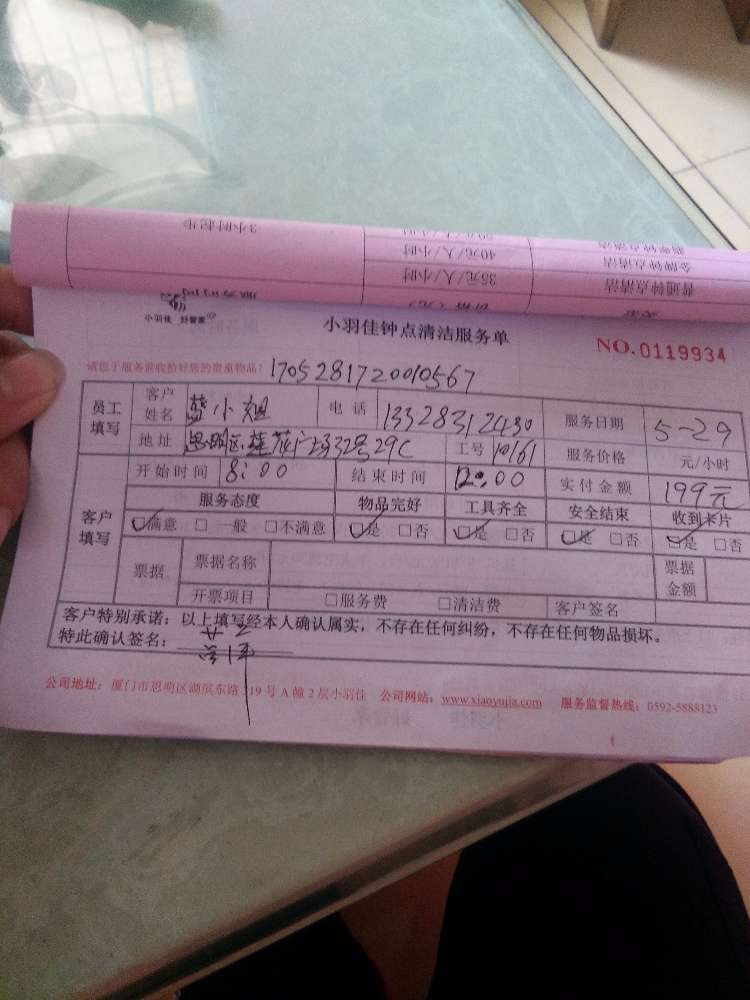 3小时起步
40元/人/小时
金牌钟点清洁
35元/人/小时
普通钟点清洁
小羽佳 好管家
小羽佳钟点清洁服务单
NO.0119934
请您于服务前收拾好您的贵重物品!
1705281720010567
员工填写 客户姓名 小姐 电话 13328312430 服务日期 5-29
地址 思明区莲花广场32号29C 工号 10161 服务价格 元/小时
开始时间 8:00 结束时间 12:00 实付金额 199元
客户填写 服务态度 物品完好 工具齐全 安全结束 收到卡片
☑满意 □一般 □不满意 ☑是 □否 ☑是 □否 ☑是 □否 ☑是 □否
票据 票据名称 票据金额
开票项目 □服务费 □清洁费 客户签名
客户特别承诺:以上填写经本人确认属实,不存在任何纠纷,不存在任何物品损坏。
特此确认签名:
公司地址:厦门市思明区湖滨东路319号A幢2层小羽佳 公司网站:www.xiaoyujia.com 服务监督热线:0592-5888123